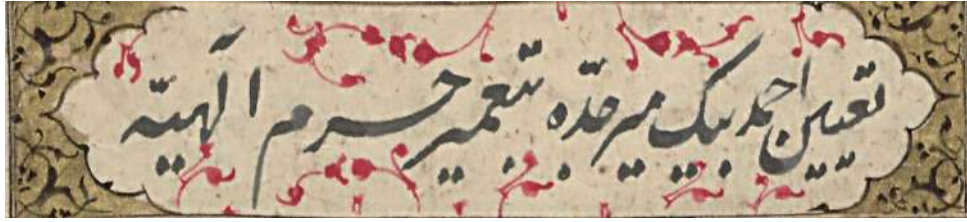 تعیین احمد بیك میر جدّه بتعمیر حرم الٓهیّه